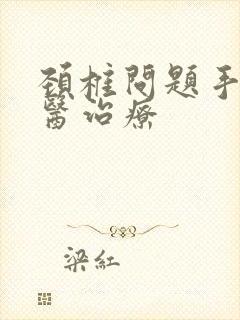 頚椎問題手
醫治療
梁紅